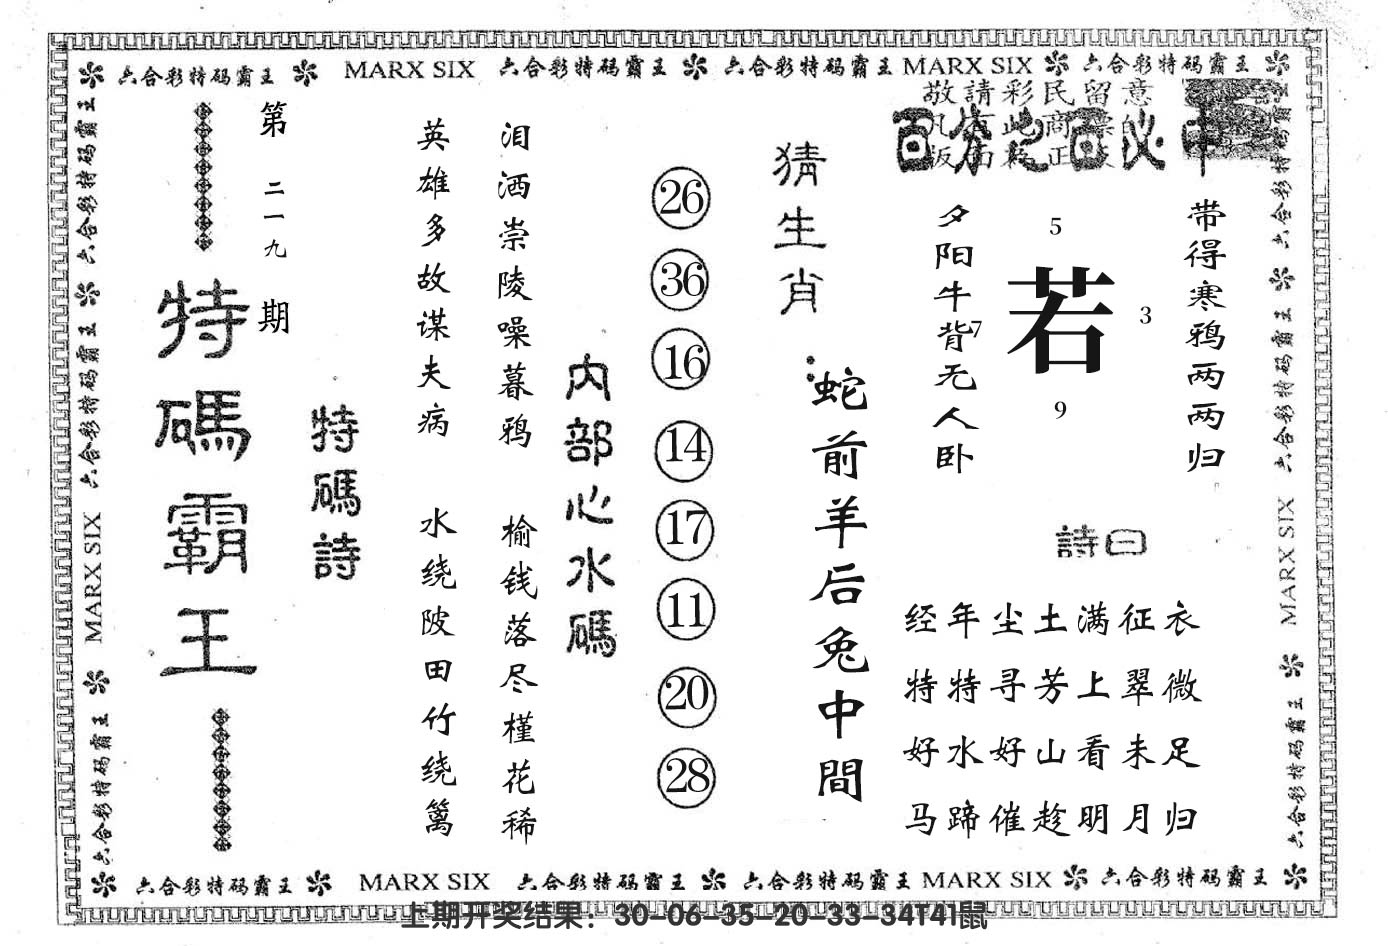 六合彩特码霸王 MARX SIX 六合彩特码霸王 六合彩特码霸王 MARX SIX 六合彩特码霸王
敬請彩民留意
百分之百必中
带得寒鸦两两归
夕阳牛背无人卧
5
7
若
3
9
詩曰
经年尘土满征衣
特特寻芳上翠微
好水好山看未足
马蹄催趁明月归
猜生肖：
蛇前羊后兔中間
26
36
16
14
17
11
20
28
内部心水碼
泪洒崇陵噪暮鸦
榆钱落尽槿花稀
英雄多故谋夫病
水绕陂田竹绕篱
特碼詩
第二一九期
特碼霸王
六合彩特码霸王 六合彩特码霸王 MARX SIX 六合彩特码霸王
六合彩特码霸王 六合彩特码霸王 MARX SIX 六合彩特码霸王
六合彩特码霸王 MARX SIX 六合彩特码霸王 六合彩特码霸王 MARX SIX 六合彩特码霸王
上期开奖结果：30-06-35-20-33-34T41鼠